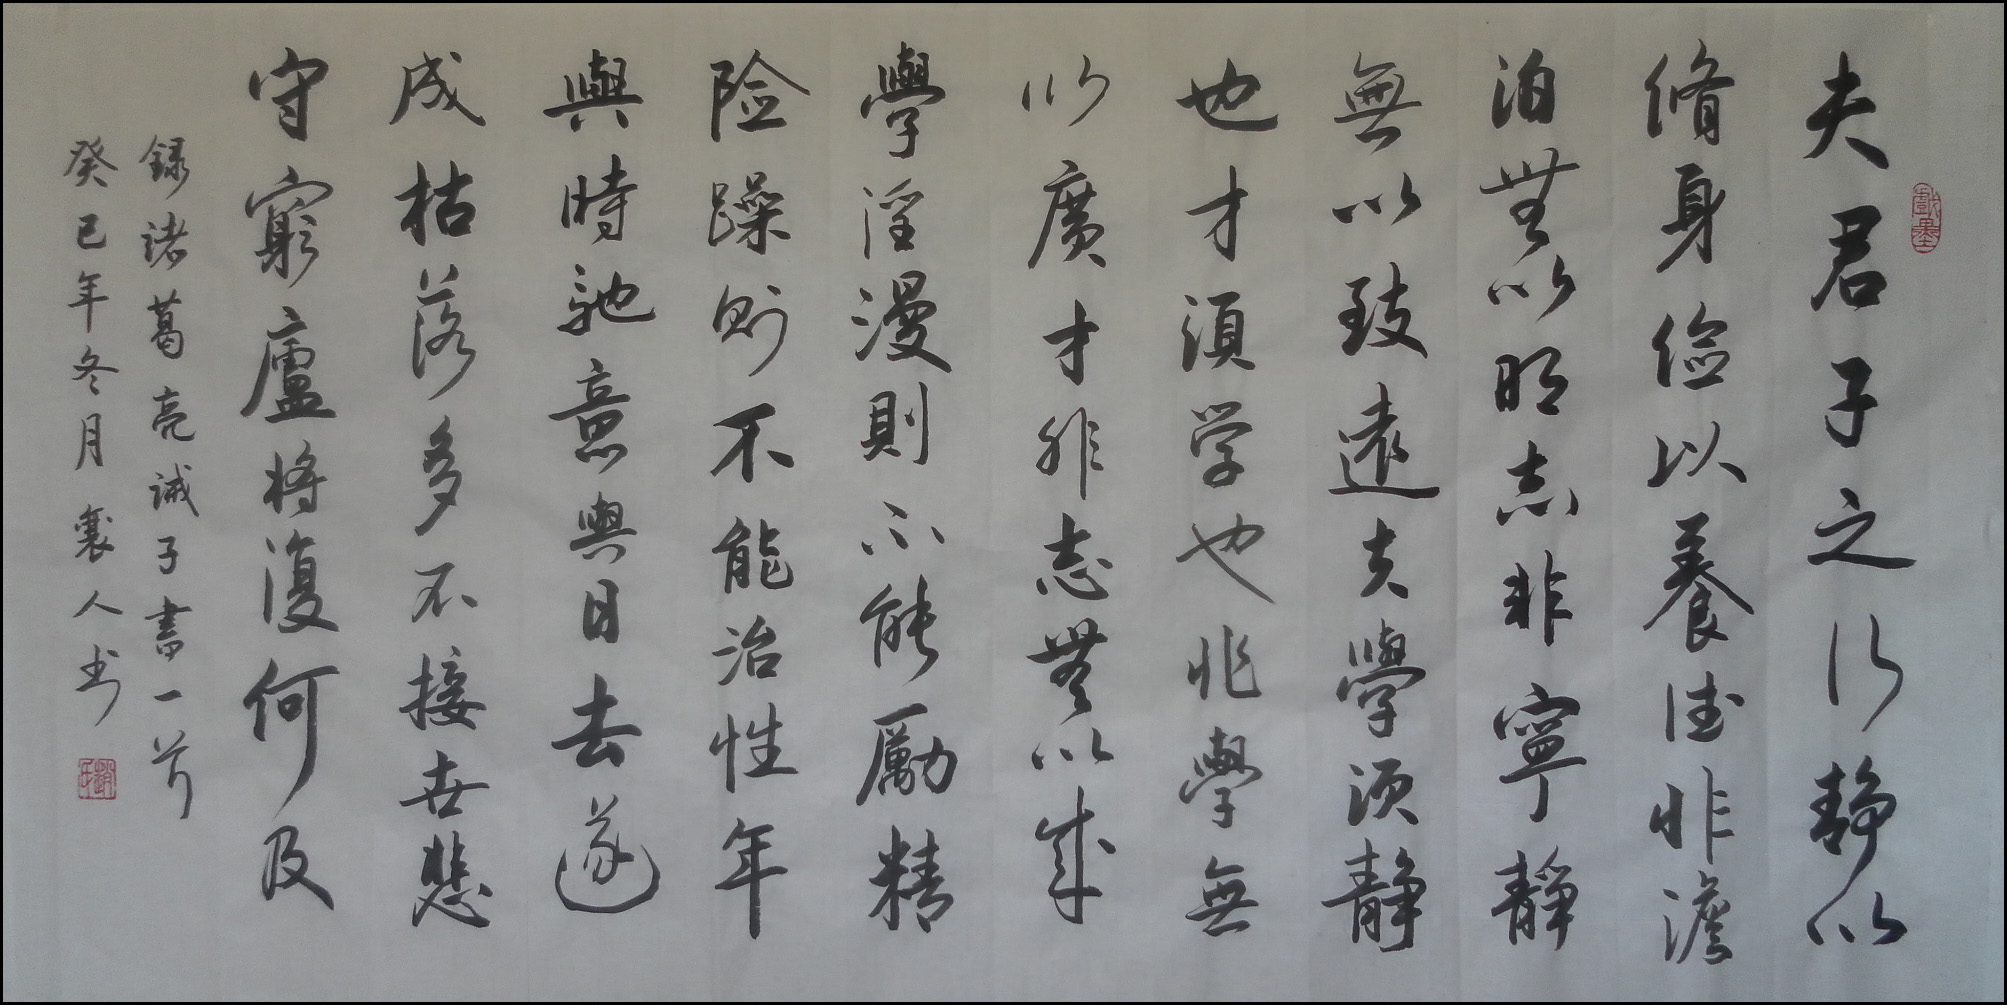 夫君子之行静以
脩身儉以養德非澹
泊無以明志非寧靜
無以致遠夫學須靜
也才須学也非學無
以廣才非志無以成
學淫漫則不能勵精
险躁则不能治性年
與時馳意與日去遂
成枯落多不接世悲
守窮廬將復何及
録诸葛亮诫子書一首
癸巳年冬月襄人书
戲墨
趙氏